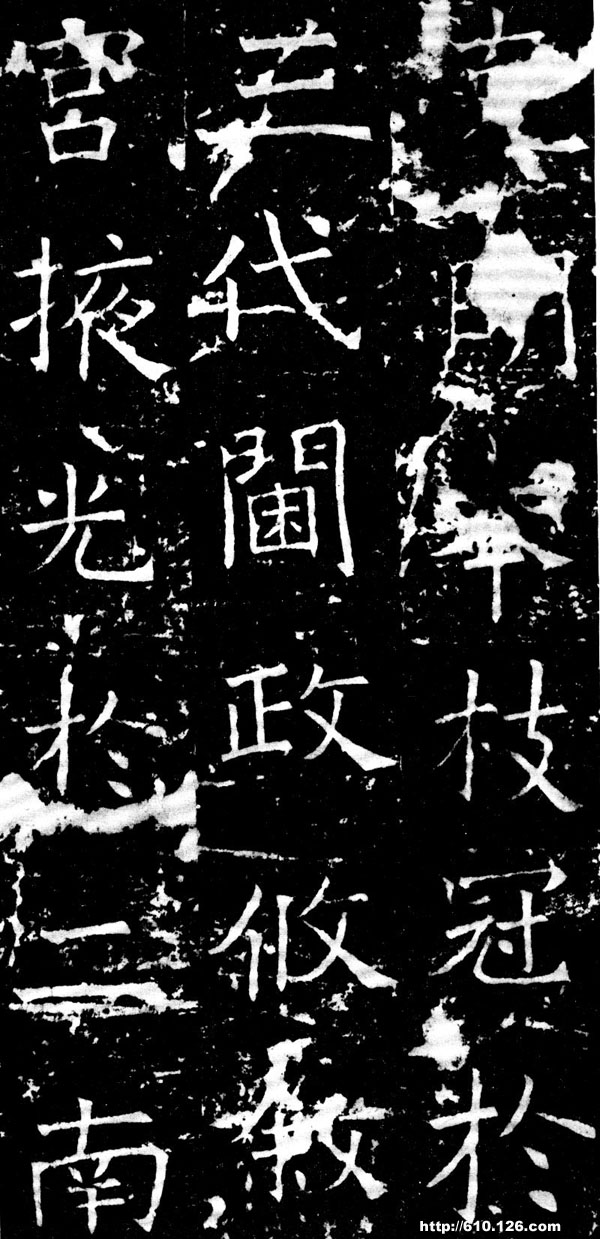 本枝冠於
三代閫政攸敘
宮掖光於二南
http://610.126.com